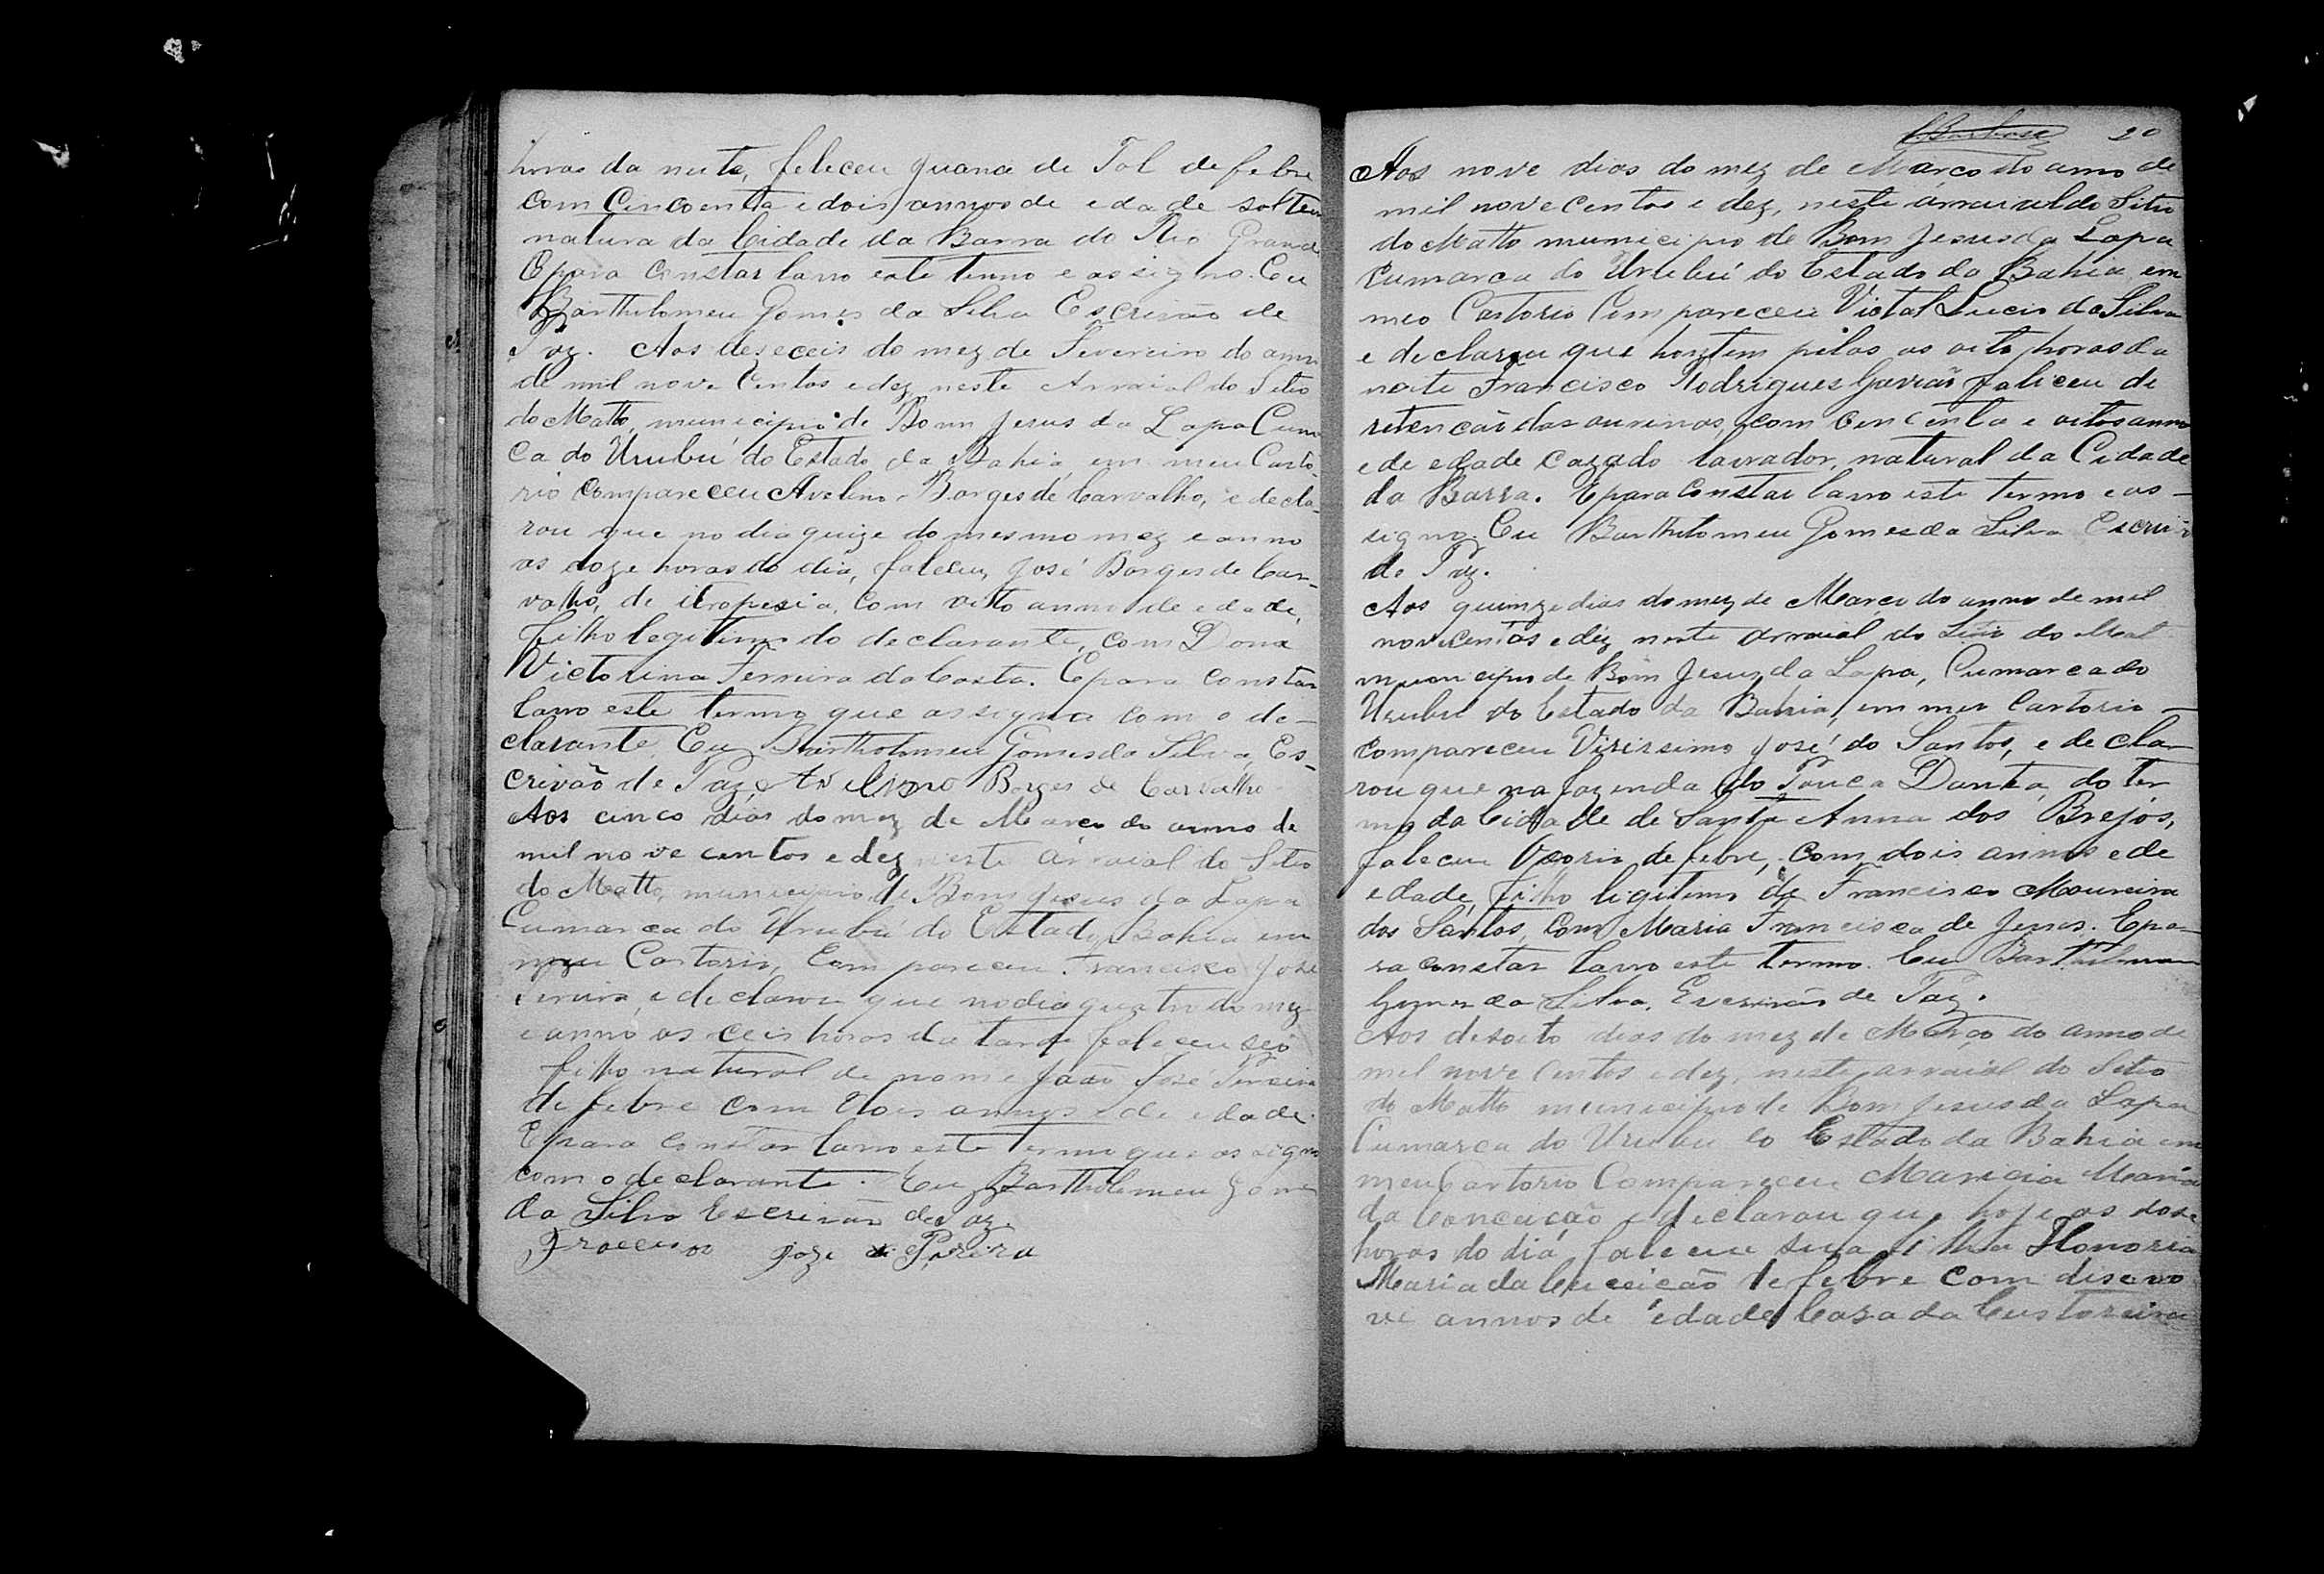 horas da noite, feleceu Juana de Tal de febre
com Cincoenta e dois annos de edade solteu
natura da Cidade da Barra do Rio Grand
E para constar lavro este termo e assigno. Eu
Bartholomeu Gomes da Silva Escrivão de
Paz. Aos deseceis do mez de Fevereiro do anno
de mil nove Centos e dez neste Arraial do Sitio
do Matto, municipio de Bom Jesus da Lapa Cum
ca do Urubú do Estado da Bahia em meu Carto-
rio compareceu Avelino Borges de Carvalho, e decla-
rou que no dia quize do mesmo mez e anno
as doze horas do dia, faleceu, José Borges de Car-
valho, de idropezia, com oito anno de edade,
filho legitimo do declarante, com Dona
Victorina Ferreira da Costa. E para constar
lavro este termo que assigna com o de-
clarante, Eu Bartholomeu Gomes da Silva, Es-
crivão de Paz, Avelino Borges de Carvalho
Aos cinco dias do mez de Março do anno de
mil nove centos e dez neste Arraial do Sitio
do Matto, municipio de Bom Jesus da Lapa
Cumarca do Urubú do Estado Bahia em
meu Cartorio, Compareceu Francisco José
Pereira, e declarou que no dia quatro do mez
e anno as ceis horas da tarde faleceu seo
filho natural de nome João José Pereira
de febre com dois annos de edade.
E para constar lavro este termo que assigno
com o declarante. Eu Bartholomeu Gomes
da Silva Escrivão de Paz.
joze Pereira
Barbosa 20
Aos nove dias do mez de Março do anno de
mil nove Centos e dez, neste arraial do Sitio
do Matto municipio de Bom Jesus da Lapa
Cumarca do Urubú do Estado da Bahia em
meo Cartorio Compareceu Victal Lucio da Silva
e declarou que hontem pelas as oito horas da
noite Francisco Rodrigues Gavião faliceu de
retencão das ourinas, com cencenta e oitos anno
e de edade cazado lavrador, natural da Cidade
da Barra. E para constar lavro este termo e as-
signo. Eu Bartholomeu Gomes da Silva Escrivão
de Paz.
Aos quinze dias do mez de Março do anno de mil
novicentos e diz neste Arraial do Sitio do Matt
municipio de Bom Jesus da Lapa, Cumarca do
Urubú do Estado da Bahia, em meu Cartorio
compareceu Virissimo José do Santos, e decla-
rou que na fazenda do Pouca Danta, do ter
mo da Cidade de Santa Anna dos Brejos,
faleceu de febre, com dois annos e de
edade, filho ligitimo de Francisco Moureira
dos Santos, com Maria Francisca de Jesus. E pa-
ra constar lavro este termo. Eu Bartholomeu
Gomes da Silva, Escrivão de Paz.
Aos desoito dias do mez de Março do anno de
mil nove Centos e dez, neste arraial do Sitio
do Matto municipio de Bom Jesus da Lapa
Cumarca do Urubu do Estado da Bahia em
meu Cartorio Compareceu Maria
da Conceição e declarou que hoje as dose
horas do dia, faleceu sua filha Honoria
Maria da Conceicão de febre com diseno
ve annos de edade Cazada Custoreira